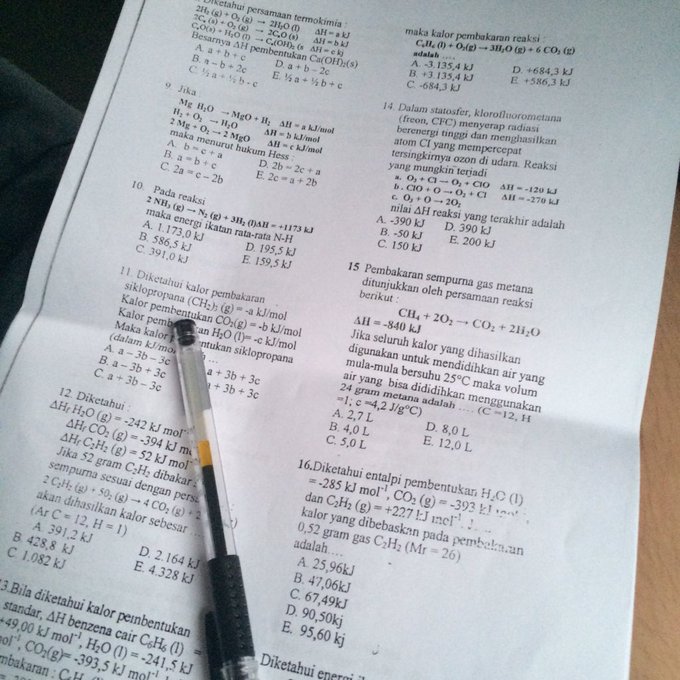 Diketahui persamaan termokimia :
2H₂ (g) + O₂ (g) → 2H₂O (l) ΔH = a kJ
2Cₐ (s) + O₂ (g) → 2CₐO (s) ΔH = b kJ
CₐO(s) + H₂O (l) → Cₐ(OH)₂ (s ΔH = c kj
Besarnya ΔH pembentukan Ca(OH)₂(s)
A. a + b + c D. a + b – 2c
B. a – b + 2c E. ½ a + ½ b + c
C. ½ a + ½ b - c
9. Jika
Mg H₂O → MgO + H₂ ΔH = a kJ/mol
H₂ + O₂ → H₂O ΔH = b kJ/mol
2 Mg + O₂ → 2 MgO ΔH = c kJ/mol
maka menurut hukum Hess :
A. b = c + a D. 2b = 2c + a
B. a = b + c E. 2c = a + 2b
C. 2a = c – 2b
10. Pada reaksi
2 NH₃ (g) → N₂ (g) + 3H₂ (l)ΔH = +1173 kJ
maka energi ikatan rata-rata N-H
A. 1.173,0 kJ D. 195,5 kJ
B. 586,5 kJ E. 159,5 kJ
C. 391,0 kJ
11. Diketahui kalor pembakaran
siklopropana (CH₂)₃ (g) = -a kJ/mol
Kalor pembentukan CO₂(g) = -b kJ/mol
Kalor an H₂O (l)= -c kJ/mol
Maka kalor ntukan siklopropana
(dalam kJ/mo ...
A. a – 3b – 3c a + 3b + 3c
B. a – 3b + 3c a + 3b + 3c
C. a + 3b – 3c
12. Diketahui :
ΔHf H₂O (g) = -242 kJ mol⁻
ΔHf CO₂ (g) = -394 kJ m
ΔHf C₂H₂ (g) = 52 kJ mol
Jika 52 gram C₂H₂ dibakar
sempurna sesuai dengan pers
2 C₂H₂ (g) + 5O₂ (g) → 4 CO₂ (g) + 2
akan dihasilkan kalor sebesar ....
(Ar C = 12, H = 1)
A. 391,2 kJ D. 2.164 kJ
B. 428,8 kJ E. 4.328 kJ
C. 1.082 kJ
3.Bila diketahui kalor pembentukan
standar, ΔH benzena cair C₆H₆ (l) =
+49,00 kJ mol⁻¹, H₂O (l) = -241,5 kJ
mol⁻¹, CO₂(g)= -393,5 kJ mol⁻¹
mbakaran :
maka kalor pembakaran reaksi :
C₆H₆ (l) + O₂(g) → 3H₂O (g) + 6 CO₂ (g)
adalah ....
A. -3.135,4 kJ D. +684,3 kJ
B. +3.135,4 kJ E. +586,3 kJ
C. -684,3 kJ
14. Dalam statosfer, klorofluorometana
(freon, CFC) menyerap radiasi
berenergi tinggi dan menghasilkan
atom CI yang mempercepat
tersingkirnya ozon di udara. Reaksi
yang mungkin terjadi
a. O₃ + Cl → O₂ + ClO ΔH = -120 kJ
b . ClO + O → O₂ + Cl ΔH = -270 kJ
c. O₃ + O → 2O₂
nilai ΔH reaksi yang terakhir adalah
A. -390 kJ D. 390 kJ
B. -50 kJ E. 200 kJ
C. 150 kJ
15 Pembakaran sempurna gas metana
ditunjukkan oleh persamaan reaksi
berikut :
CH₄ + 2O₂ → CO₂ + 2H₂O
ΔH = -840 kJ
Jika seluruh kalor yang dihasilkan
digunakan untuk mendidihkan air yang
mula-mula bersuhu 25°C maka volum
air yang bisa dididihkan menggunakan
24 gram metana adalah .... (C =12, H
=1; c =4,2 J/g°C)
A. 2,7 L D. 8,0 L
B. 4,0 L E. 12,0 L
C. 5,0 L
16.Diketahui entalpi pembentukan H₂O (l)
= -285 kJ mol⁻¹, CO₂ (g) = -393 kJ
dan C₂H₂ (g) = +227 kJ mol⁻¹.
kalor yang dibebaskan pada pembakaran
0,52 gram gas C₂H₂ (Mr = 26)
adalah....
A. 25,96kJ
B. 47,06kJ
C. 67,49kJ
D. 90,50kj
E. 95,60 kj
Diketahui energi